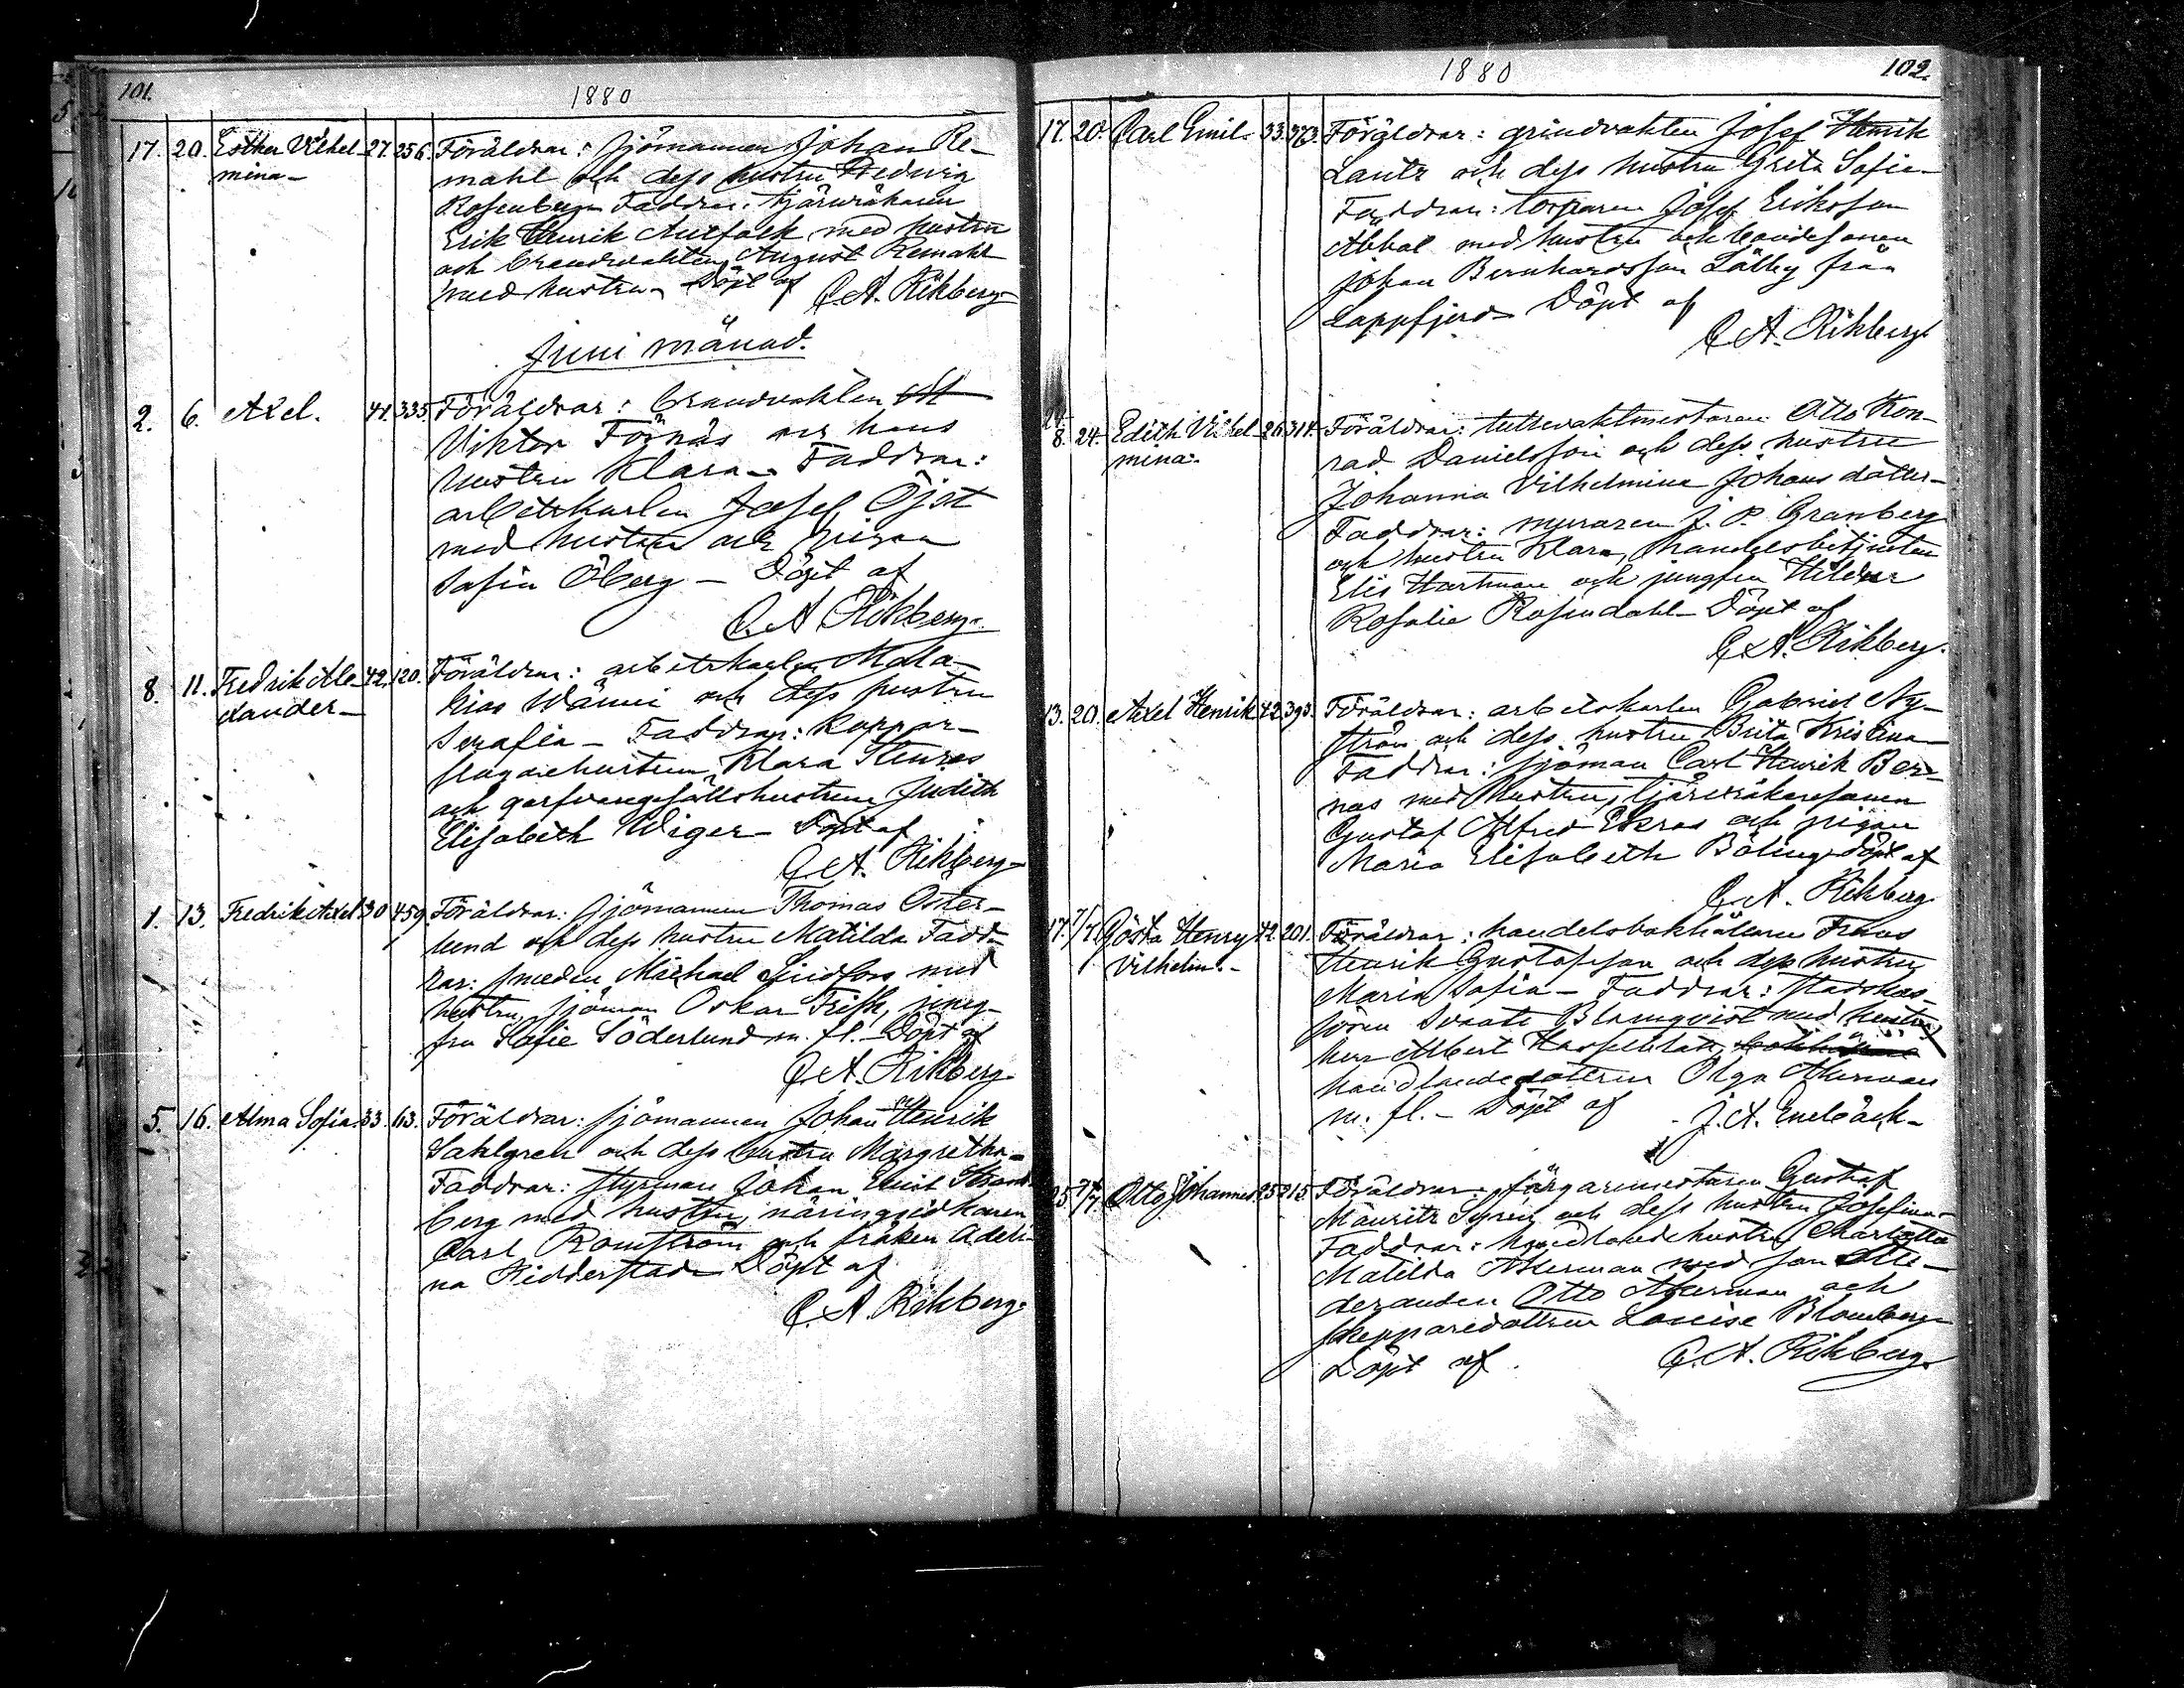 101.
1880
17. 20. Esther Vilhel- 27. 256. Föräldrar: sjömannen Johan Re-
mina- mahl och dess hustru Fredvig
Rosenberg Faddrar: tjärvräkaren
Erik Henrik Antfolk med hustru
och brandvakten August Remahl
med hustru - Döpt af C. A. Rikberg
Juni månad.
2. 6. Axel. 41. 335. Föräldrar: brandvakten
Viktor Törnäs och hans
hustru Klara - Faddrar:
arbetskarlen Josef Öjst
med hustru och pigan
Sofia Öberg - Döpt af
C. A. Rikberg.
8. 11. Fredrik Ale- 42. 120. Föräldrar: arbetskarlen Mala-
xander- kias Wänni och dess hustru
Serafia - Faddrar: koppar-
slagarehustrun Klara Stenros
och garfvaregesällshustrun Judith
Elisabeth Wiger - Döpt af
C. A. Rikberg
1. 13. Fredrik Axel 30 459. Föräldrar: sjömannen Thomas Öster-
lund och dess hustru Matilda Fadd-
rar: smeden Michael Lindfors med
hustru, sjöman Oskar Frisk, jung-
fru Sofie Söderlund m. fl. - Döpt af
C. A. Rikberg.
5. 16. Alma Sofia. 33. 63. Föräldrar: sjömannen Johan Henrik
Sahlgren och dess hustru Margretha-
Faddrar: styrman Johan Emil Strand-
berg med hustru, näringsidkaren
Carl Romström och fröken Adeli-
na Ridderstad - Döpt af
C. A. Rikberg.
1880
102.
17. 20. Carl Emil- 33. 373. Föräldrar: grindvakten Josef Henrik
Lantz och dess hustru Greta Sofia-
Faddrar: torparen Josef Eriksson
Abbal med hustru och bondesonen
Johan Bernhardsson Lålby från
Lappfjerd - Döpt af
C. A. Rikberg.
24.
8. 24. Edith Vilhel- 26. 314. Föräldrar: tullvaktmestaren Otto Kon-
mina. rad Danielsson och dess hustru
Johanna Vilhelmina Johans dotter-
Faddrar: muraren J. P. Granberg
och hustru Klara, handelsbetjenten
Elis Hartman och jungfru Hildur
Rosalie Rosendahl - Döpt af
C. A. Rikberg.
13. 20. Axel Henrik 42. 393. Föräldrar: arbetskarlen Gabriel Ny-
ström och dess hustru Brita Kristina-
Faddrar: sjöman Carl Henrik Ber-
nas med hustru, tjärvräkaresonen
Gustaf Alfred Ekros och pigan
Maria Elisabeth Böling - Döpt af
C. A. Rikberg
17. 7/7. Gösta Henry 42. 201. Föräldrar: handelsbokhållaren Frans
Vilhelm.- Henrik Gustafsson och dess hustru
Maria Sofia - Faddrar: stadskas-
sören Svante Blomqvist med hustru,
herr Albert Hasselblatt,
handlandedottren Olga Åkerman
m. fl. - Döpt af J. A. Enebäck-
25. /7. Otto Johannes 25 215. Föräldrar: färgaremestaren Gustaf
Mauritz Syren och dess hustru Josefina-
Faddrar: handlandehustru Charlotta
Matilda Åkerman med son Stu-
deranden Otto Åkerman och
skepparedottren Louise Blomberg
Döpt af C. A. Rikberg.